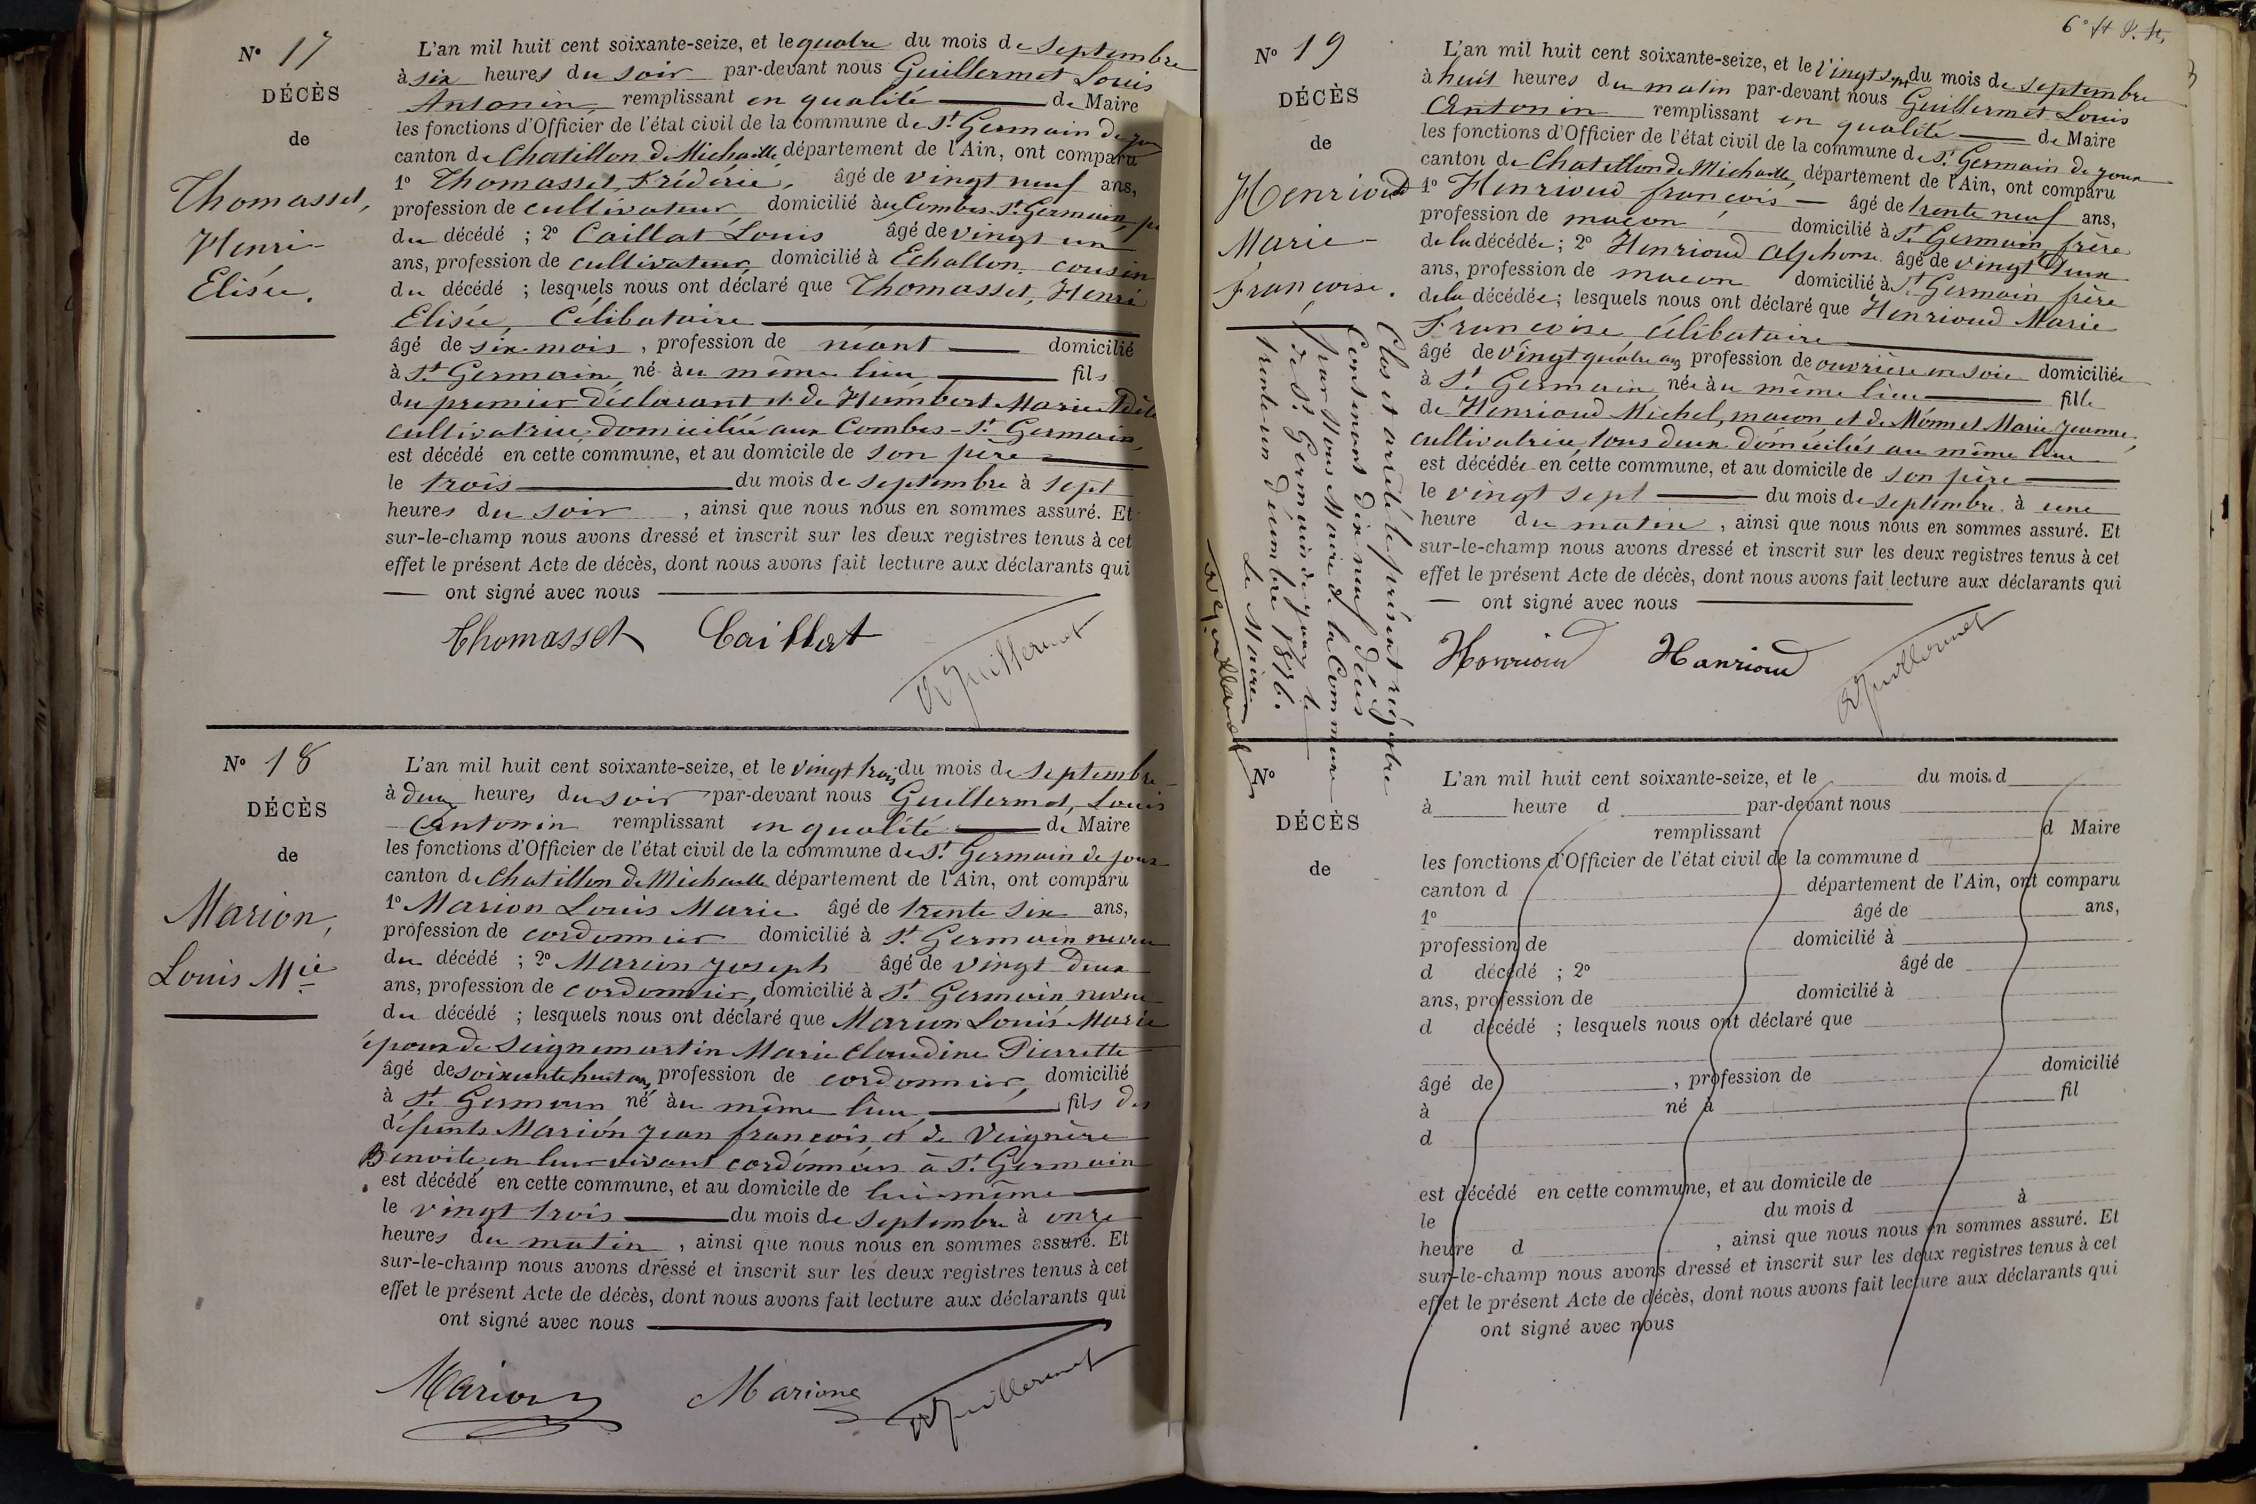 N° 17
DÉCÈS
de
Thomasset,
Henri
Elisée.
L'an mil huit cent soixante-seize, et le quatre du mois de septembre
à six heures du soir par-devant nous Guillermet Louis
Antonin remplissant en qualité de Maire
les fonctions d'Officier de l'état civil de la commune de St Germain de
canton de Chatillon de Michaille, département de l'Ain, ont comparu
1° Thomasset, Frédéric, âgé de vingt neuf ans,
profession de cultivateur domicilié aux Combes St Germain,
du décédé ; 2° Caillat Louis âgé de vingt un
ans, profession de cultivateur domicilié à Echallon, cousin
du décédé ; lesquels nous ont déclaré que Thomasset, Henri
Elisée, Célibataire
âgé de six mois, profession de néant domicilié
à St Germain, né au même lieu fils
du premier déclarant et de Humbert Marie
cultivatrice domiciliée aux Combes-St Germain,
est décédé en cette commune, et au domicile de son père
le trois du mois de septembre à sept
heures du soir, ainsi que nous nous en sommes assuré. Et
sur-le-champ nous avons dressé et inscrit sur les deux registres tenus à cet
effet le présent Acte de décès, dont nous avons fait lecture aux déclarants qui
ont signé avec nous
Thomasset Caillat Guillermet
N° 18
DÉCÈS
de
Marion,
Louis Mie
L'an mil huit cent soixante-seize, et le vingt trois du mois de septembre
à deux heures du soir par-devant nous Guillermet, Louis
Antonin remplissant en qualité de Maire
les fonctions d'Officier de l'état civil de la commune de St Germain de joux
canton de Chatillon de Michaille département de l'Ain, ont comparu
1° Marion Louis Marie âgé de trente six ans,
profession de cordonnier domicilié à St Germain neveu
du décédé ; 2° Marion Joseph âgé de vingt deux
ans, profession de cordonnier, domicilié à St Germain neveu
du décédé ; lesquels nous ont déclaré que Marion Louis Marie
époux de Seignemartin Marie Claudine Pierrette
âgé de soixante huit ans, profession de cordonnier, domicilié
à St Germain né au même lieu, fils des
défunts Marion Jean françois et de Veignère
Benoite en leur vivant cordonniers à St Germain
est décédé en cette commune, et au domicile de lui-même
le vingt trois du mois de septembre à onze
heures du matin, ainsi que nous nous en sommes assuré. Et
sur-le-champ nous avons dressé et inscrit sur les deux registres tenus à cet
effet le présent Acte de décès, dont nous avons fait lecture aux déclarants qui
ont signé avec nous
Marion Marion Guillermet
N° 19
DÉCÈS
de
Henrioud
Marie
Françoise.
L'an mil huit cent soixante-seize, et le vingt sept du mois de septembre
à huit heures du matin par-devant nous Guillermet Louis
Antonin remplissant en qualité de Maire
les fonctions d'Officier de l'état civil de la commune de St Germain de joux
canton de Chatillon de Michaille, département de l'Ain, ont comparu
1° Henrioud françois âgé de trente neuf ans,
profession de maçon domicilié à St Germain, frère
de la décédée ; 2° Henrioud Alphonse âgé de vingt deux
ans, profession de maçon domicilié à St Germain frère
de la décédée ; lesquels nous ont déclaré que Henrioud Marie
Françoise célibataire
âgé de vingt quatre ans profession de ouvrière en soie domiciliée
à St Germain, née au même lieu fille
de Henrioud Michel, maçon et de Monnet Marie Jeanne,
cultivatrice tous deux domiciliés au même lieu
est décédée en cette commune, et au domicile de son père
le vingt sept du mois de septembre à une
heure du matin, ainsi que nous nous en sommes assuré. Et
sur-le-champ nous avons dressé et inscrit sur les deux registres tenus à cet
effet le présent Acte de décès, dont nous avons fait lecture aux déclarants qui
ont signé avec nous
Henrioud Henrioud Guillermet
Clos et arrêté le présent régistre
Contenant dix neuf décès
par Nous Maire de la Commune
de St Germain de joux le
trente un décembre 1876.
Le Maire
Guillermet
N°
DÉCÈS
de
L'an mil huit cent soixante-seize, et le du mois d
à heure d par-devant nous
remplissant d Maire
les fonctions d'Officier de l'état civil de la commune d
canton d département de l'Ain, ont comparu
1° âgé de ans,
profession de domicilié à
d décédé ; 2° âgé de
ans, profession de domicilié à
d décédé ; lesquels nous ont déclaré que
âgé de , profession de domicilié
à né à fil
d
est décédé en cette commune, et au domicile de
le du mois d à
heure d , ainsi que nous nous en sommes assuré. Et
sur-le-champ nous avons dressé et inscrit sur les deux registres tenus à cet
effet le présent Acte de décès, dont nous avons fait lecture aux déclarants qui
ont signé avec nous